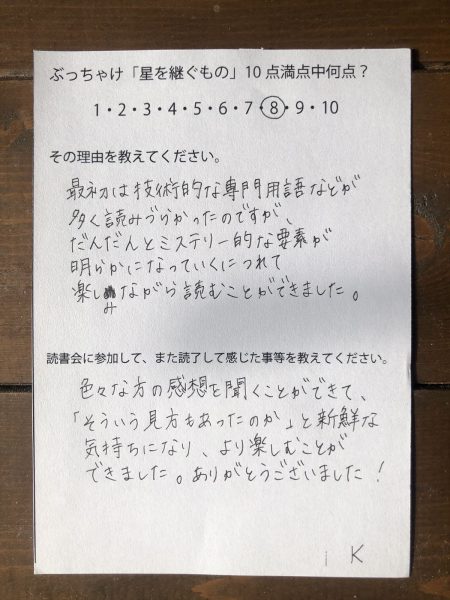 ぶっちゃけ「星を継ぐもの」10点満点中何点？
1・2・3・4・5・6・7・8・9・10
その理由を教えてください。
最初は技術的な専門用語などが
多く読みづらかったのですが、
だんだんとミステリー的な要素が
明らかになっていくにつれて
楽しみながら読むことができました。
読書会に参加して、また読了して感じた事等を教えてください。
色々な方の感想を聞くことができて、
「そういう見方もあったのか」と新鮮な
気持ちになり、より楽しむことが
できました。ありがとうございました！
K